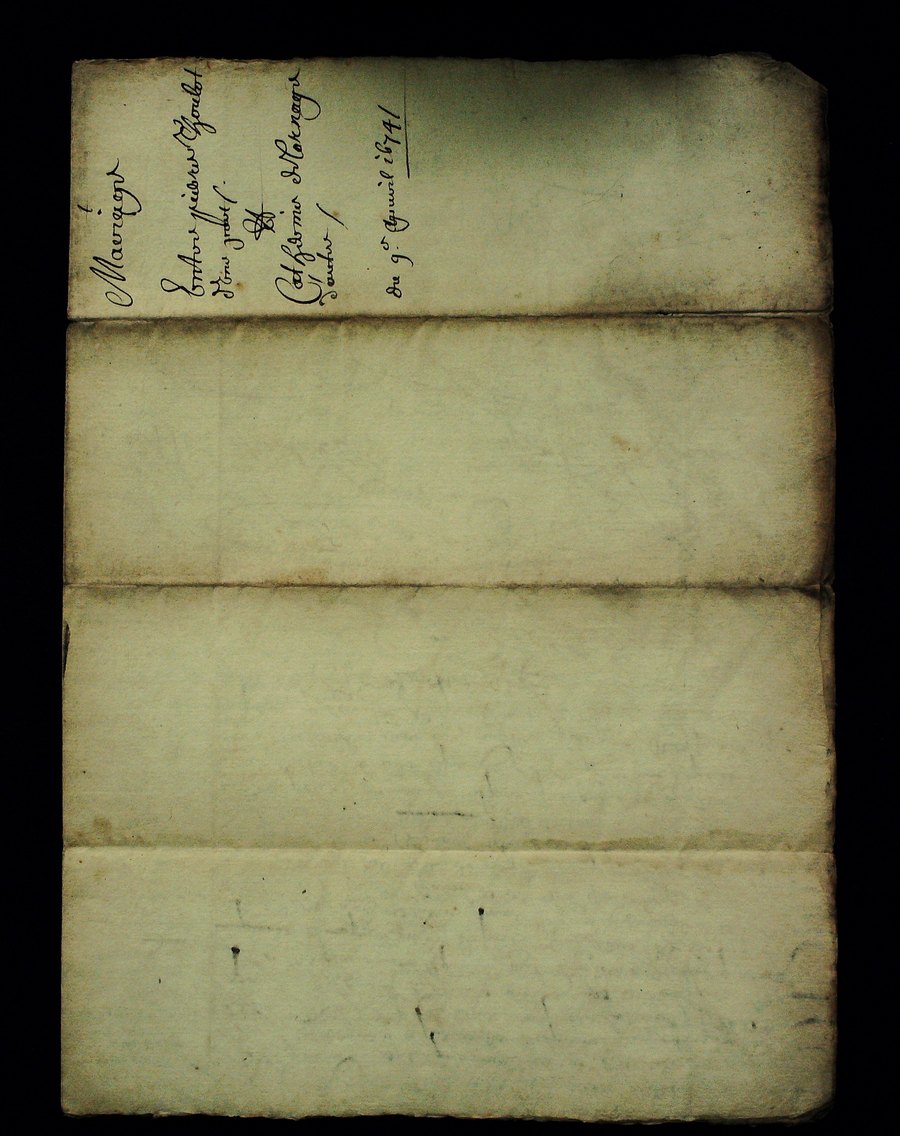 Mariage
Entre pierre Thoulot
d'une part /.
Et
Catherine de Marnays
d'autre /
du 9e Apuril 1674 /